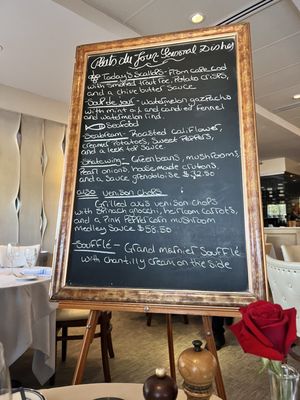 Plats du Jour General Dishes
Today's Scallops - From cape cod
with smoked trout roe, Potato crisps,
and a chive butter Sauce
Soup du Jour - watermelon gazpacho
with mint oil and candied fennel
and watermelon rind.
Seafood
Seabream - Roasted cauliflower,
creamed Potatoes, Sweet Peppers,
and a leek Sauce
Skatewing - Greenbeans, mushrooms,
Pearl onions, housemade croutons,
and a Sauce grenobloise $42.50
also venison chops
Grilled axis venison chops
with Spinach gnocchi, heirloom carrots,
and a Pink Pepper corn mushroom
medley Sauce $58.50
Soufflé - Grand marnier Soufflé
with chantilly cream on the side